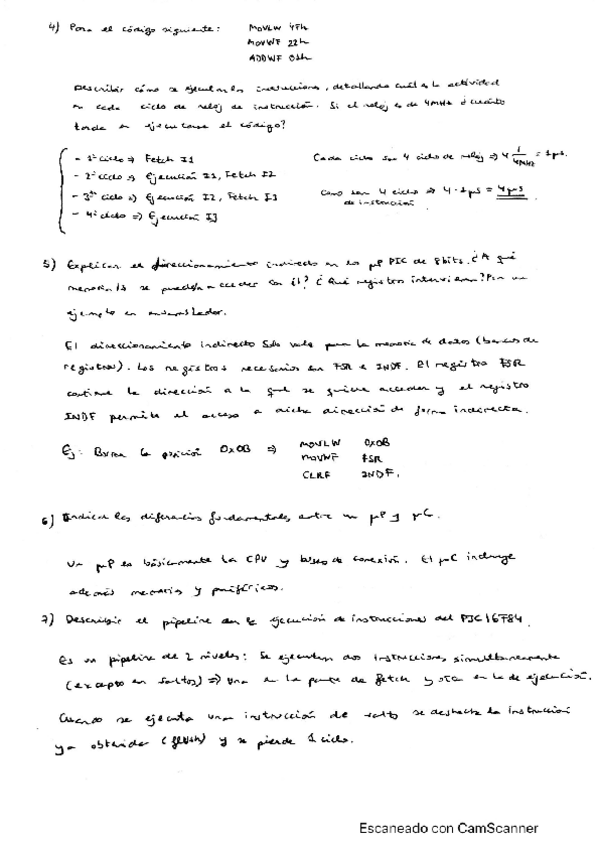 4) Para el código siguiente: MOVLW 47h
MOVWF 22h
ADDWF 03h
Describir cómo se ejecutan las instrucciones, detallando cuál es la actividad
en cada ciclo de reloj de instrucción. Si el reloj es de 4MHz ¿cuánto
tarda en ejecutarse el código?
- 1er ciclo => Fetch I1
- 2º ciclo => Ejecución I1, Fetch I2
- 3er ciclo => Ejecución I2, Fetch I3
- 4º ciclo => Ejecución I3
Cada ciclo son 4 ciclo de reloj => 4 1/4MHz = 1µs.
Como son 4 ciclo => 4·1µs = 4µs
de instrucción
5) Explicar el direccionamiento indirecto en los µP PIC de 8bits. ¿A qué
memoria/s se pueden acceder con él? ¿Qué registros intervienen? Pon un
ejemplo en ensamblador.
El direccionamiento indirecto solo vale para la memoria de datos (bancos de
registros). Los registros necesarios son FSR e INDF. El registro FSR
contiene la dirección a la que se quiere acceder y el registro
INDF permite el acceso a dicha dirección de forma indirecta.
Ej: Borrar la posición 0x0B => MOVLW 0x0B
MOVWF FSR
CLRF INDF.
6) Indicar las diferencias fundamentales entre un µP y µC.
Un µP es básicamente la CPU y buses de conexión. El µC incluye
además memorias y periféricos.
7) Describir el pipeline en la ejecución de instrucciones del PIC16F84.
Es un pipeline de 2 niveles: Se ejecutan dos instrucciones simultáneamente
(excepto en saltos) => una en la parte de fetch y otra en la de ejecución.
Cuando se ejecuta una instrucción de salto se deshecha la instrucción
ya obtenida (flush) y se pierde 1 ciclo.
Escaneado con CamScanner